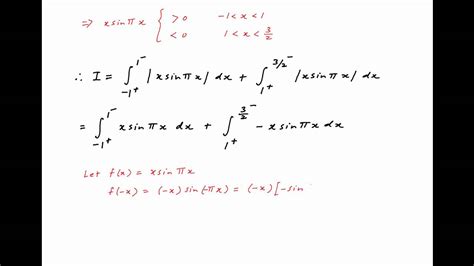 ⇒ x sin πx { > 0   -1 < x < 1
< 0   1 < x < 3/2
∴ I = ∫_{-1⁺}^{1⁻} |x sin πx| dx + ∫_{1⁺}^{3/2⁻} |x sin πx| dx
= ∫_{-1⁺}^{1⁻} x sin πx dx + ∫_{1⁺}^{3/2⁻} -x sin πx dx
Let f(x) = x sin πx
f(-x) = (-x) sin(-πx) = (-x) [-sin